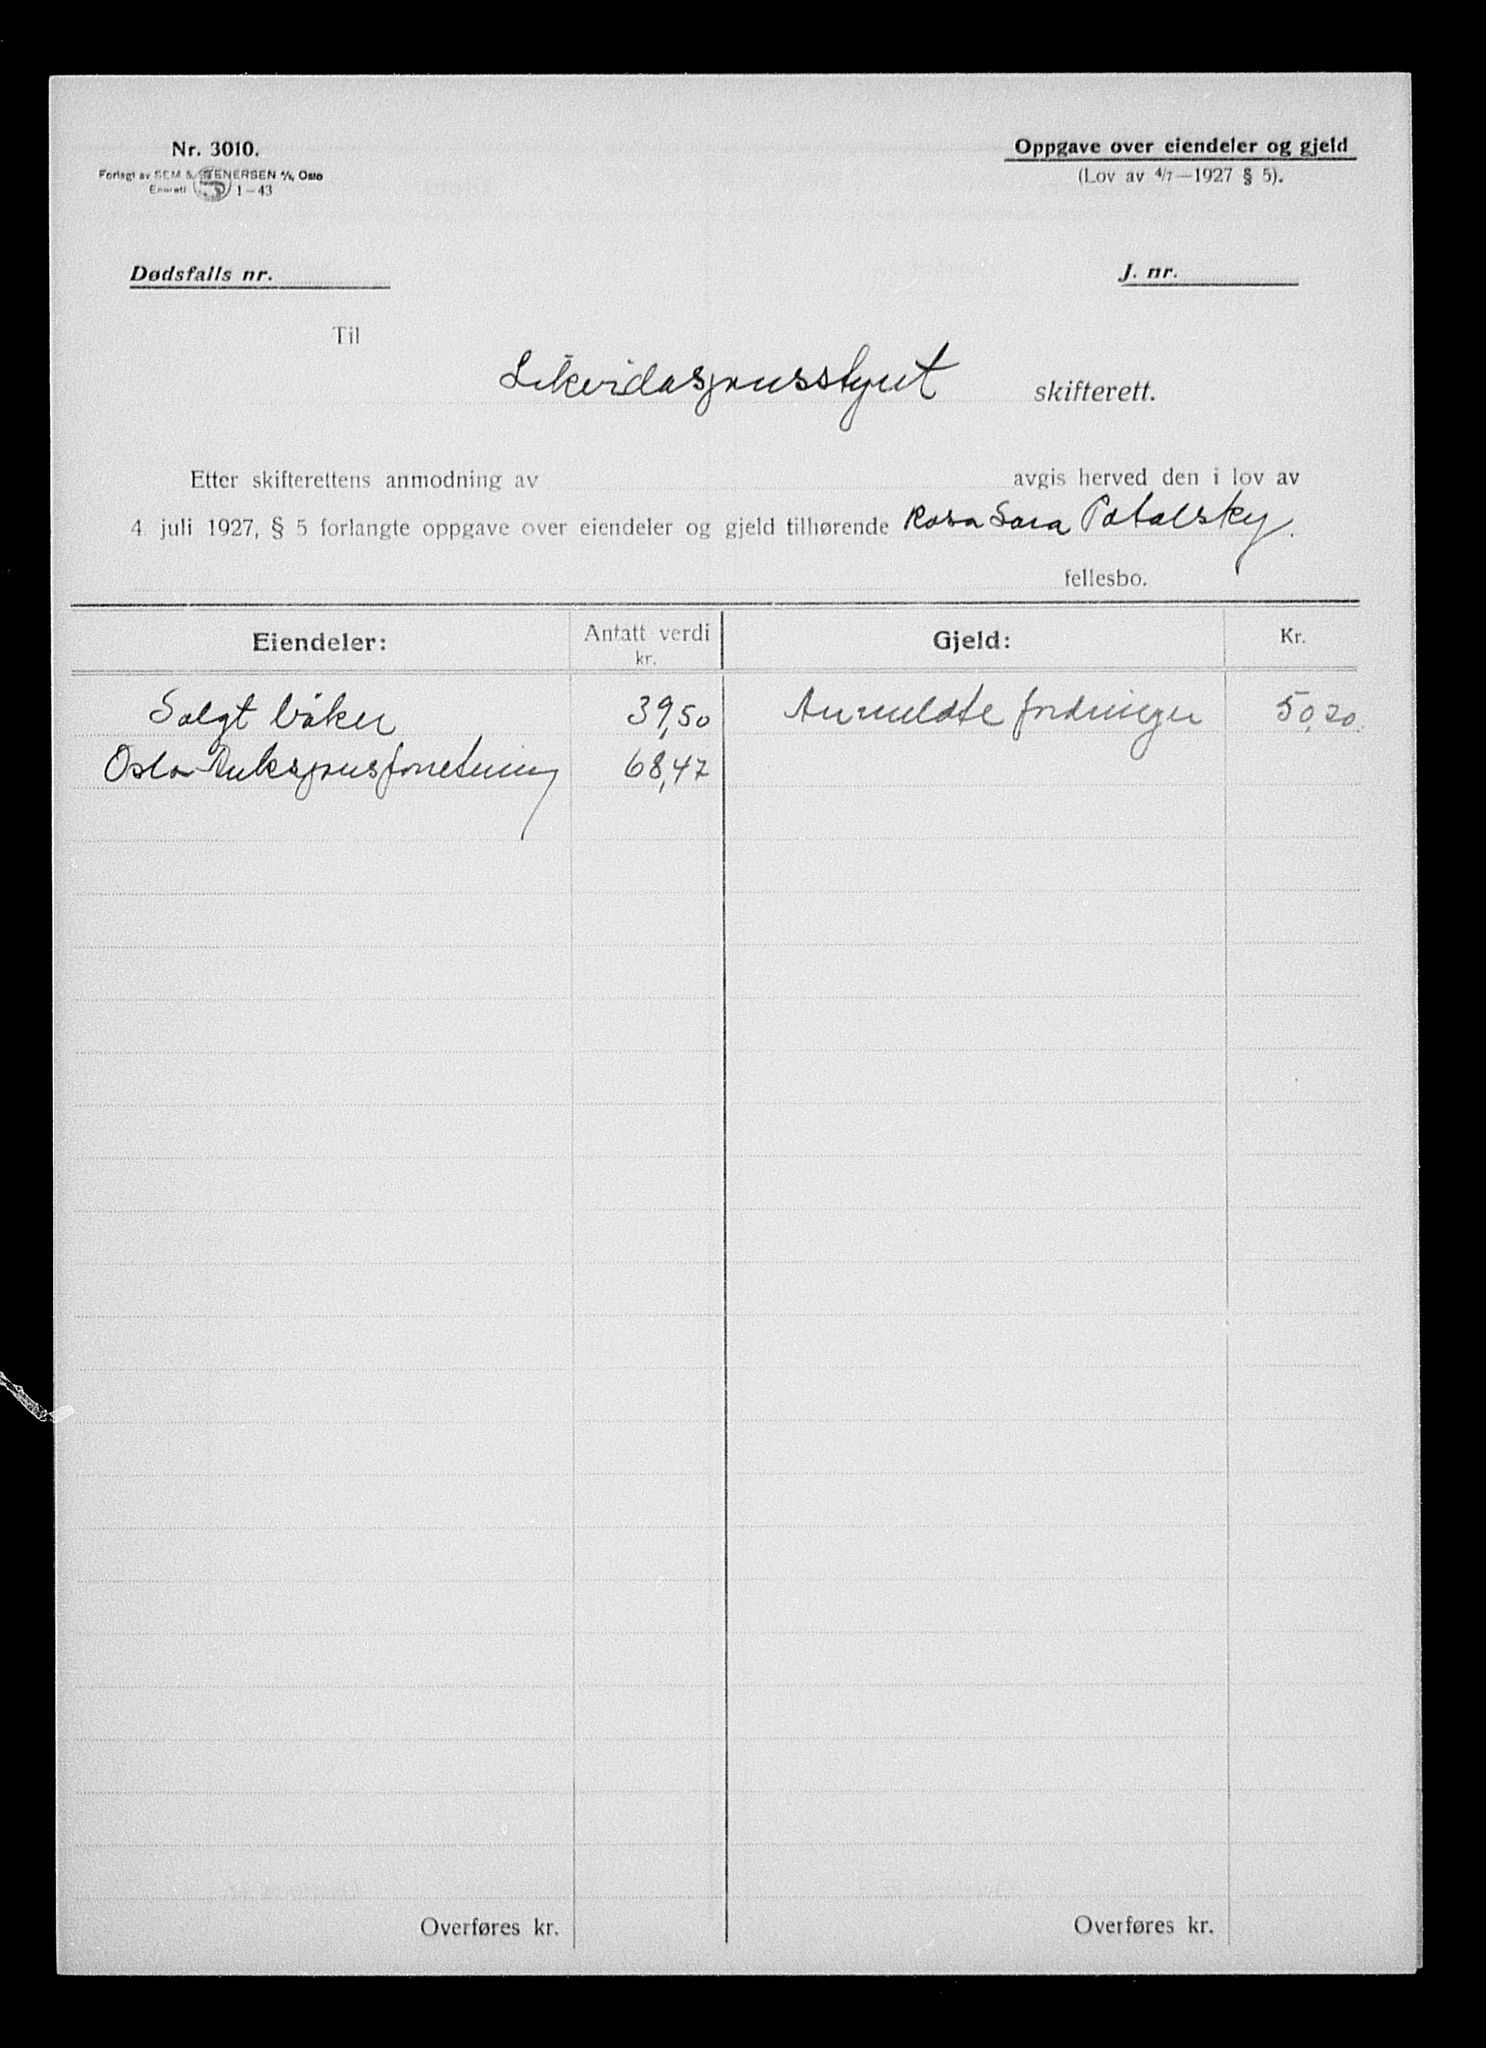 Nr. 3010.
Forlagt av SEM & STENERSEN A/S, Oslo
Enerett 1-43
Oppgave over eiendeler og gjeld
(Lov av 4/7—1927 § 5).
Dødsfalls nr.
J. nr.
Til
Likvidasjonsstyret skifterett.
Etter skifterettens anmodning av avgis herved den i lov av
4. juli 1927, § 5 forlangte oppgave over eiendeler og gjeld tilhørende Rosa Sara Potolsky.
fellesbo.
Eiendeler: Antatt verdi kr. Gjeld: Kr.
Solgt bøker 39,50 Anmeldte fordringer 50,20.
Oslo Auksjonsforretning 68,47
Overføres kr. Overføres kr.